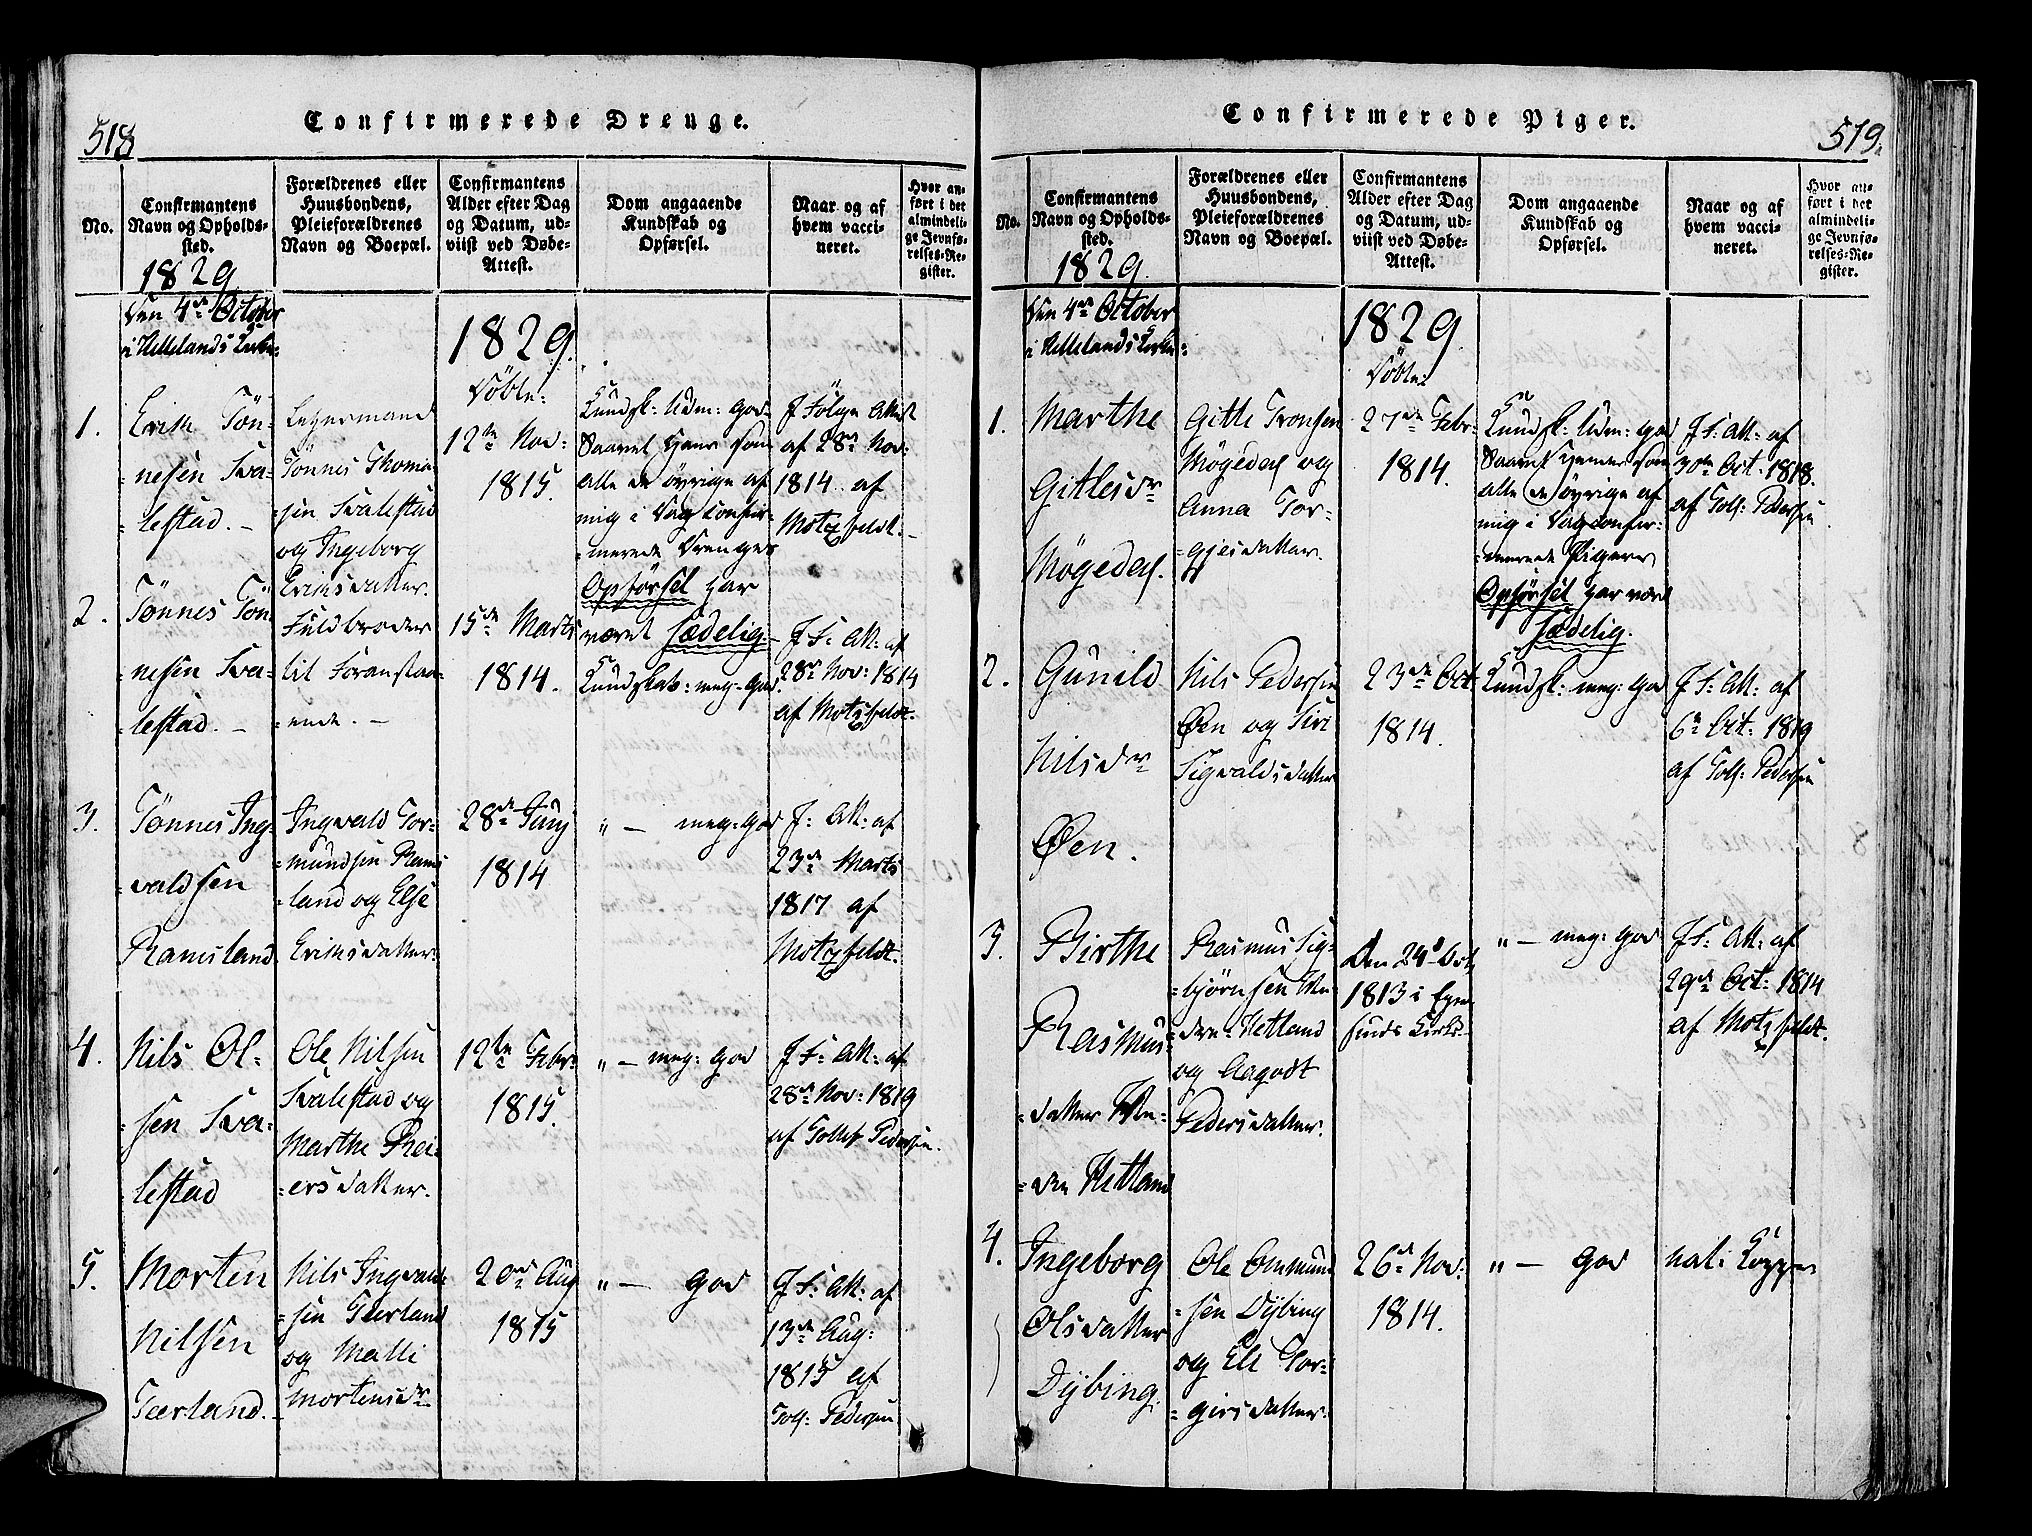 518
Confirmerede Drenge.
No.
Confirmantens
Navn og Opholds-
sted.
1829
Forældrenes eller
Huusbondens,
Pleieforældrenes
Navn og Boepæl.
Confirmantens
Alder efter Dag
og Datum, ud-
viist ved Døbe-
Attest.
Dom angaaende
Kundskab og
Opførsel.
Naar og af
hvem vacci-
neret.
Hvor an-
ført i det
almindeli-
ge Jevnfø-
relses-Re-
gister.
Den 4de October
i Hellelands Kirke
1829.
1.
Erik Tön-
nesen Sva-
lestad.
Lehnsmand
Tönnes Thomæ-
sen Svalestad
og Ingeborg
Eriksdatter.
Döbt:
12te Nov:
1815.
Kundsk: Udm: god
Saavel Hans som
alle de øvrige af
mig i Dag confir-
merede Drenges
Opførsel har
været sædelig.
J Følge Attest
af 28de Nov:
1814 af
Motzfeldt.
2.
Tönnes Tön-
nesen Sva-
lestad.
Fuldbroder
til Foranstaa-
ende.
15de Marts
1814.
Kundskab: meg: god.
J F: Att: af
28de Nov: 1814
af Motzfeldt.
3.
Tönnes Ing-
valdsen
Ramsland
Ingvald Tor-
mundsen Rams-
land og Else
Eriksdatter.
28de Juny
1814
" — meg: god
J F: Att: af
23de Marts
1817 af
Motzfeldt.
4.
Nils Ol-
sen Sva-
lestad
Ole Nilsen
Svalestad og
Marthe Rei-
ersdatter.
12te Febr:
1815.
" — meg: god
J F: Att: af
28de Nov: 1819
af Tollef Pedersen.
5.
Morten
Nilsen
Teerland.
Nils Ingvald-
sen Teerland
og Malli
Mortensdr
20de Aug
1815
" — god
J F: Att: af
13de Aug:
1815 af
Tolf: Pedersen
Confirmerede Piger.
519.
No.
Confirmantens
Navn og Opholds-
sted.
1829.
Forældrenes eller
Huusbondens,
Pleieforældrenes
Navn og Boepæl.
Confirmantens
Alder efter Dag
og Datum, ud-
viist ved Døbe-
Attest.
Dom angaaende
Kundskab og
Opførsel.
Naar og af
hvem vacci-
neret.
Hvor an-
ført i det
almindeli-
ge Jevnfø-
relses-Re-
gister.
Den 4de October
i Hellelands Kirke
1829.
1.
Marthe
Gitlesdr
Mögedal.
Gitle Tronsen
Mögedal og
Anna Tor-
gjesdatter.
Döbt:
27de Febr:
1814.
Kundsk: Udm: god
Saavel Hendes som
alle de øvrige af
mig i Dag confir-
merede Pigers
Opførsel har været
sædelig.
J F: Att: af
30te Oct. 1818.
af Tolf: Pedersen
2.
Gunild
Nilsdr
Øen.
Nils Pedersen
Øen og Siri
Sigvaldsdatter
23de Oct
1814.
Kundsk: meg: god
J F: Att: af
6te Oct: 1819
af Tolf: Pedersen
3.
Birthe
Rasmus-
datter Ne-
dre Hetland
Rasmus Sig-
björnsen Ne-
dre Hetland
og Aagodt
Pedersdatter.
Den 24de Oct:
1813 i Eger-
sunds Kirke
" — meg: god
J F: Att: af
29de Oct: 1814
af Motzfeldt.
4.
Ingeborg
Olsdatter
Dybing.
Ole Ommund-
sen Dybing
og Eli Tor-
gersdatter.
26de Nov:
1814.
" — god
nat: Kopper